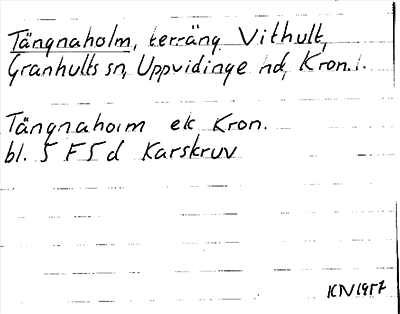 Tängnaholm, terräng Vithult,
Granhults sn, Uppvidinge hd, Kron. l.
Tängnaholm ek Kron.
bl. 5 F 5 d Karskruv
KN 1957